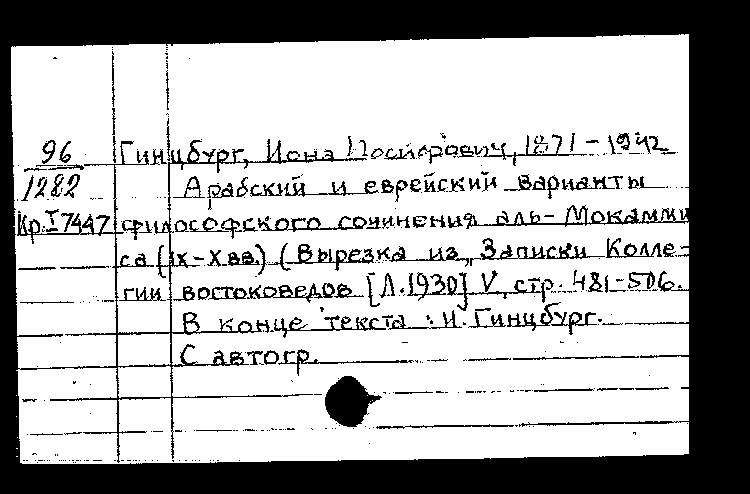 96 Гинцбург, Иона Иосифович, 1871-1942
1282 Арабский и еврейский варианты
Кр.I 7447 философского сочинения аль-Мокамми
са (IX-Xвв) (Вырезка из „Записки Колле-
гии востоковедов [Л.1930] V, стр. 481-506.
В конце текста: И. Гинцбург.
С автогр.